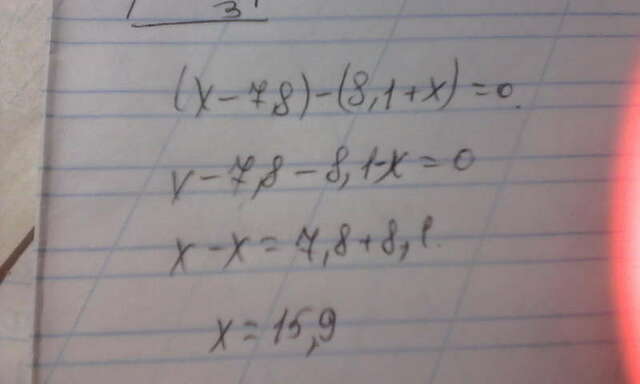 3
(x-7,8)-(8,1+x)=0.
x-7,8-8,1-x=0
x-x=7,8+8,1.
x=15,9